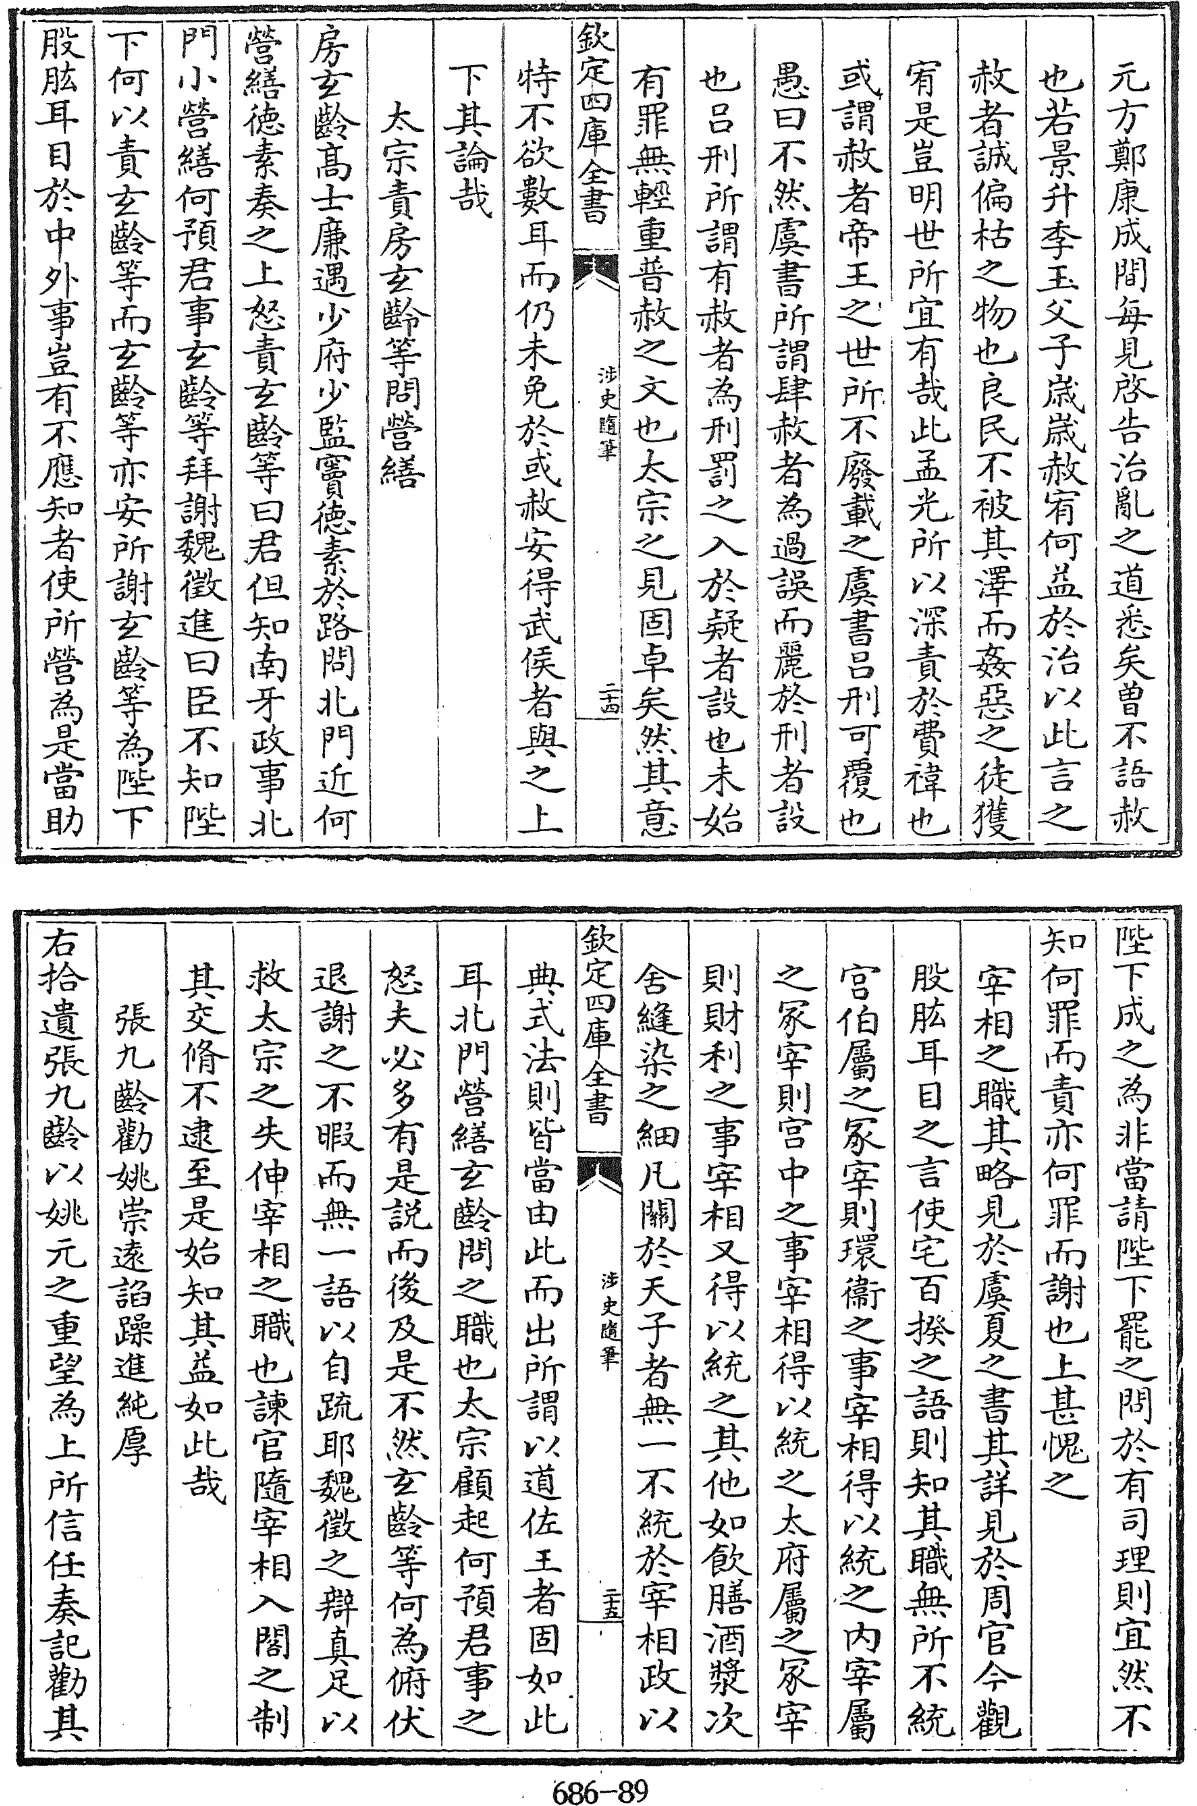 元方鄭康成間每見啓告治亂之道悉矣曾不語赦
也若景升季玉父子歳歳赦宥何益於治以此言之
赦者誠偏枯之物也良民不被其澤而姦惡之徒獲
宥是豈明世所宜有哉此孟光所以深責於費禕也
或謂赦者帝王之世所不廢載之虞書呂刑可覆也
愚曰不然虞書所謂肆赦者為過誤而麗於刑者設
也呂刑所謂有赦者為刑罰之入於疑者設也未始
有罪無輕重普赦之文也太宗之見固卓矣然其意
欽定四庫全書
涉史隨筆
二十四
特不欲數耳而仍未免於或赦安得武侯者與之上
下其論哉
太宗責房玄齡等問營繕
房玄齡髙士廉遇少府少監竇徳素於路問北門近何
營繕徳素奏之上怒責玄齡等曰君但知南牙政事北
門小營繕何預君事玄齡等拜謝魏徵進曰臣不知陛
下何以責玄齡等而玄齡等亦安所謝玄齡等為陛下
股肱耳目於中外事豈有不應知者使所營為是當助
陛下成之為非當請陛下罷之問於有司理則宜然不
知何罪而責亦何罪而謝也上甚愧之
宰相之職其略見於虞夏之書其詳見於周官今觀
股肱耳目之言使宅百揆之語則知其職無所不統
宫伯屬之冢宰則環衞之事宰相得以統之内宰屬
之冢宰則宫中之事宰相得以統之太府屬之冢宰
則財利之事宰相又得以統之其他如飲膳酒漿次
舍縫染之細凡關於天子者無一不統於宰相政以
欽定四庫全書
涉史隨筆
二十五
典式法則皆當由此而出所謂以道佐王者固如此
耳北門營繕玄齡問之職也太宗顧起何預君事之
怒夫必多有是説而後及是不然玄齡等何為俯伏
退謝之不暇而無一語以自䟽耶魏徵之辯真足以
救太宗之失伸宰相之職也諫官隨宰相入閤之制
其交脩不逮至是始知其益如此哉
張九齡勸姚崇逺諂躁進純厚
右拾遺張九齡以姚元之重望為上所信任奏記勸其
686-89